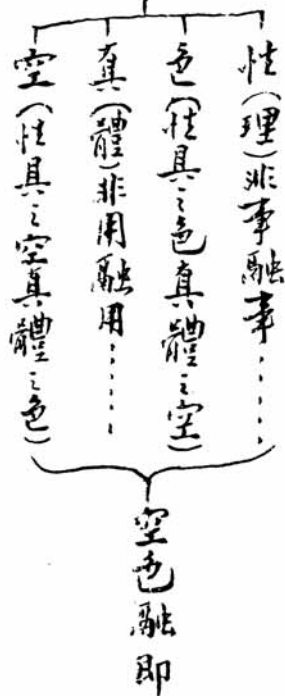 性(理)非事融事⋯⋯
色(性具之色真體之空)
真(體)非用融用⋯⋯
空(性具之空真體之色)
空色融即